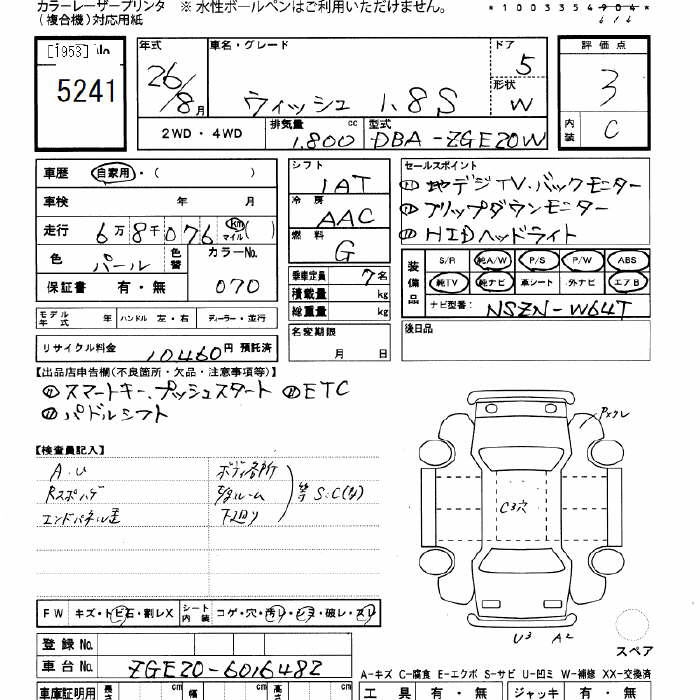 カラーレーザープリンタ ※ 水性ボールペンはご利用いただけません。
(複合機)対応用紙
*1003354904*
[1953] No
5241
年式 26/8月
車名・グレード ウィッシュ 1.8S
ドア 5
形状 W
評価点 3
内装 C
2WD・4WD
排気量 1,800 cc
型式 DBA-ZGE20W
車歴 自家用・( )
車検 年 月
走行 6万8千076 km マイル ( )
色 パール 色替 カラーNo. 070
保証書 有・無
シフト 1AT
冷房 AAC
燃料 G
乗車定員 7名
積載量 kg
総重量 kg
名変期限 月 日
セールスポイント
(1) 地デジTV.バックモニター
(2) フリップダウンモニター
(3) HIDヘッドライト
装備品 S/R 純A/W P/S P/W ABS
純TV 純ナビ 革シート 外ナビ エアB
ナビ型番: NSZN-W64T
後日品
モデル年式 年 ハンドル 左・右 ディーラー・並行
リサイクル料金 10460円 預託済
【出品店申告欄(不良箇所・欠品・注意事項等)】
スマートキー、プッシュスタート ETC
パドルシフト
【検査員記入】
A.U ボディ各所
Rスポハゲ ルーム 等 S:C(小)
エンドパネル歪 下廻り
C3穴
U3 A2
スペア
FW キズ・トビ石・割レX シート内装 コゲ・穴・汚レ・シミ・破レ・スレ
登録No.
車台No. ZGE20-6016482
A-キズ C-腐食 E-エクボ S-サビ U-凹ミ W-補修 XX-交換済
車庫証明用 長さ cm 幅 cm 高さ cm
工具 有・無 ジャッキ 有・無